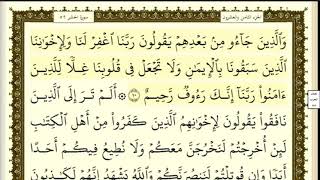 الجزء الثامن والعشرون
سورة الحشر ٥٩
وَٱلَّذِينَ جَآءُو مِنۢ بَعْدِهِمْ يَقُولُونَ رَبَّنَا ٱغْفِرْ لَنَا وَلِإِخْوَٰنِنَا
ٱلَّذِينَ سَبَقُونَا بِٱلْإِيمَٰنِ وَلَا تَجْعَلْ فِى قُلُوبِنَا غِلًّا لِّلَّذِينَ
ءَامَنُوا۟ رَبَّنَآ إِنَّكَ رَءُوفٌ رَّحِيمٌ ١٠ ۞ أَلَمْ تَرَ إِلَى ٱلَّذِينَ
نَافَقُوا۟ يَقُولُونَ لِإِخْوَٰنِهِمُ ٱلَّذِينَ كَفَرُوا۟ مِنْ أَهْلِ ٱلْكِتَٰبِ
لَئِنْ أُخْرِجْتُمْ لَنَخْرُجَنَّ مَعَكُمْ وَلَا نُطِيعُ فِيكُمْ أَحَدًا
أَبَدًا وَإِن قُوتِلْتُمْ لَنَنصُرَنَّكُمْ وَٱللَّهُ يَشْهَدُ إِنَّهُمْ لَكَٰذِبُونَ